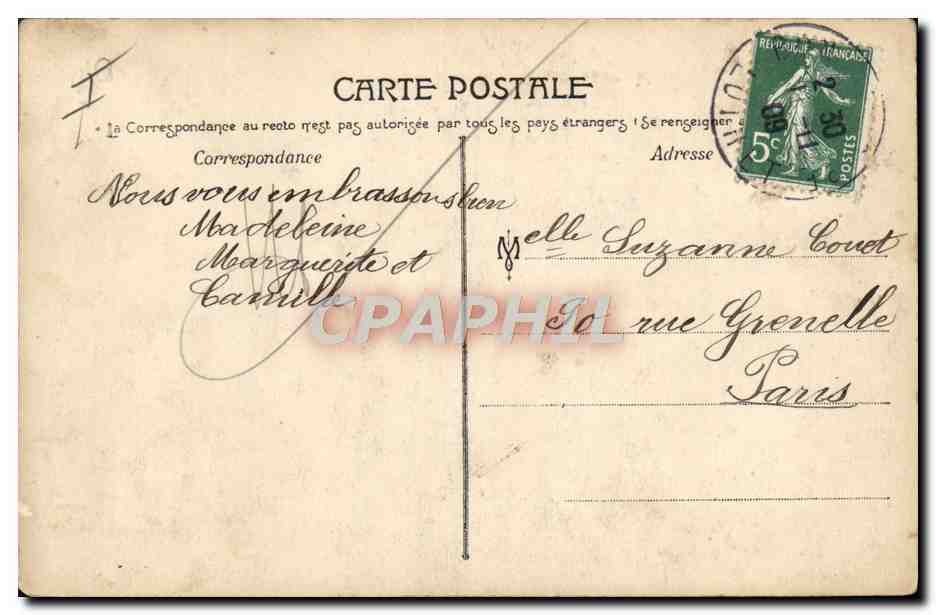 CARTE POSTALE
La Correspondance au recto n'est pas autorisée par tous les pays étrangers (Se renseigner
Correspondance
Adresse
REPUBLIQUE FRANÇAISE
5c
POSTES
2
30
11
09
Nous vous embrassons bien
Madeleine
Marguerite et
Camille
Melle Suzanne Couet
90 rue Grenelle
Paris
CPAPHIL